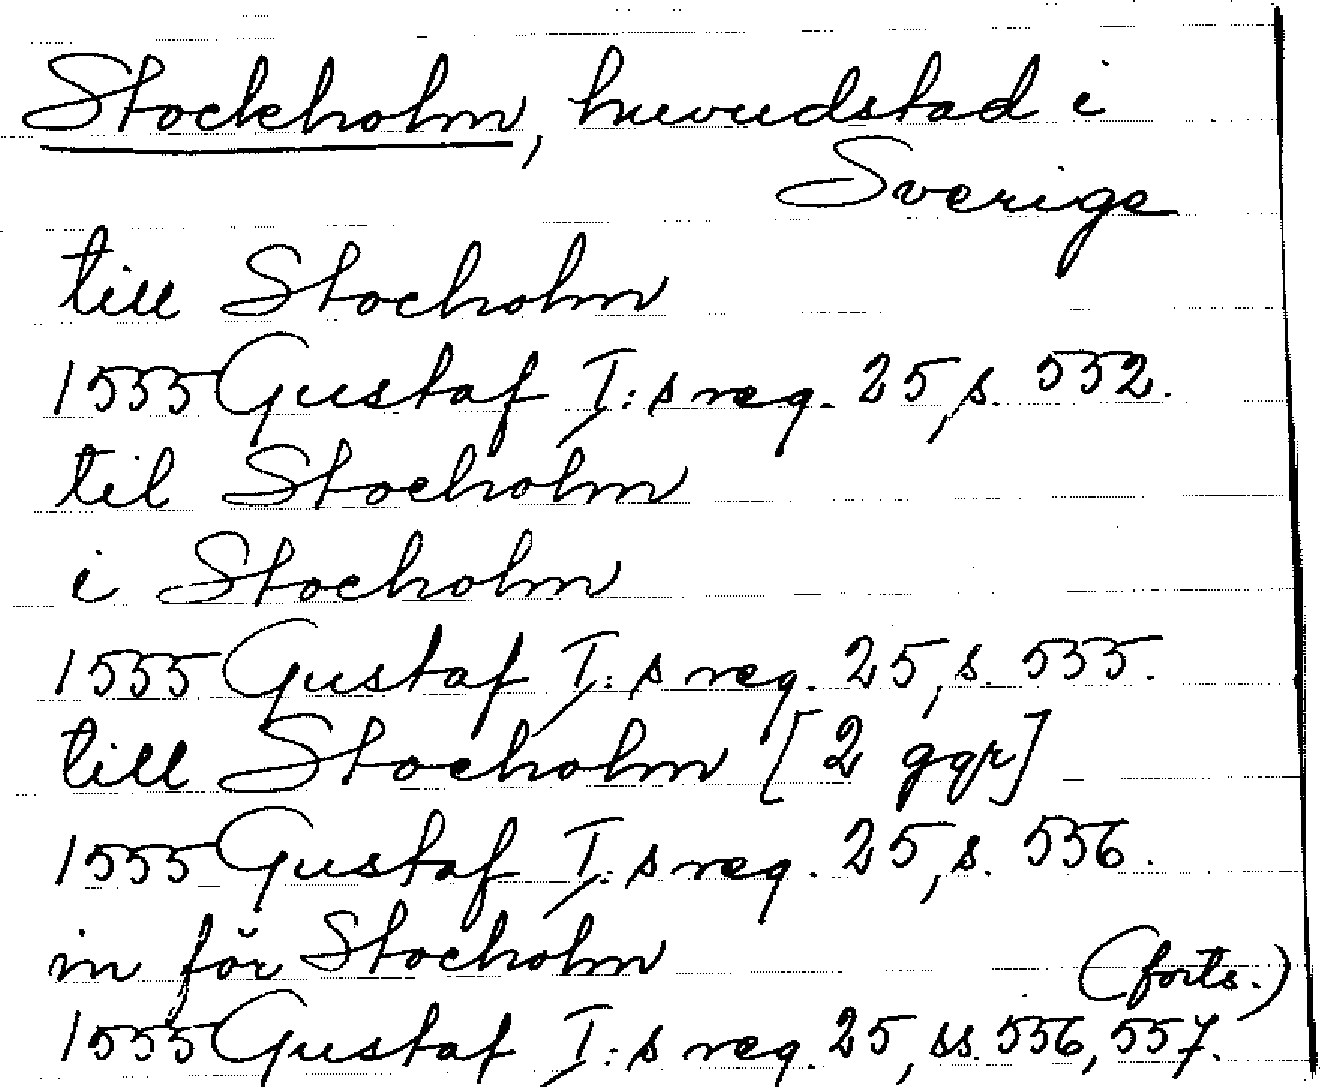 Stockholm, huvudstad i
Sverige
till Stocholm
1555 Gustaf I:s reg. 25, s. 552.
til Stocholm
i Stocholm
1555 Gustaf I:s reg. 25, s. 555.
till Stocholm [2 ggr]
1555 Gustaf I:s reg. 25, s. 556.
in för Stocholm
(forts.)
1555 Gustaf I:s reg. 25, ss. 556, 557.